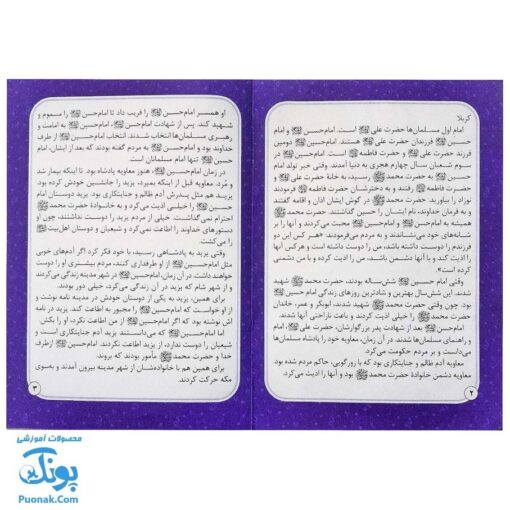 کربلا
امام اول مسلمان‌ها حضرت علی است. امام‌حسن و امام
حسین فرزندان حضرت علی هستند. امام‌حسین دومین
فرزند حضرت علی و حضرت فاطمه است. امام حسین در
سوم شعبان سال چهارم هجری به دنیا آمدند. وقتی خبر تولد امام
حسین به حضرت محمد رسید، به خانهٔ حضرت علی و
حضرت فاطمه رفتند و به دخترشان حضرت فاطمه فرمودند
نوزاد را بیاورید. حضرت محمد در گوش ایشان اذان و اقامه گفتند
و به فرمان خداوند، نام ایشان را حسین گذاشتند. حضرت محمد
همیشه به امام‌حسن و امام‌حسین محبت می‌کردند و آنها را بر
شانه‌های خود می‌نشاندند و به مردم می‌فرمودند: «هر کس این دو
فرزندم را دوست داشته باشد، من را دوست داشته است و هر کس آنها
را اذیت کند و با آنها دشمن باشد، من را اذیت کرده و با من دشمنی
کرده است.»
وقتی امام حسین شش‌ساله بودند، حضرت محمد شهید
شدند. این شش‌سال بهترین و شادترین روزهای زندگی امام حسین
بود. چون وقتی حضرت محمد شهید شدند، ابوبکر و عمر، خاندان
حضرت محمد را خیلی اذیت کردند و باعث ناراحتی آنها شدند.
امام‌حسن بعد از شهادت پدر بزرگوارشان، حضرت علی، امام
و راهنمای مسلمان‌ها شدند. در آن زمان، معاویه خود را پادشاه مسلمان‌ها
می‌دانست و بر مردم حکومت می‌کرد.
معاویه آدم ظالم و جنایتکاری بود که با زورگویی، حاکم مردم شده بود.
معاویه دشمن خانوادهٔ حضرت محمد بود و آنها را اذیت می‌کرد.
۲
او همسر امام‌حسن را فریب داد تا امام‌حسن را مسموم و
شهید کند. پس از شهادت امام‌حسن، امام‌حسین به امامت و
رهبری مسلمان‌ها انتخاب شدند. انتخاب امام‌حسین از طرف
خداوند بود و امام‌حسن به مردم گفته بودند که بعد از ایشان، امام
حسین تنها امام مسلمانان است.
در زمان امام‌حسین، هنوز معاویه پادشاه بود. تا اینکه بیمار شد
و مُرد. معاویه قبل از اینکه بمیرد، یزید را جانشین خودش کرده بود.
یزید هم مثل پدرش آدم ظالم و جنایتکاری بود. یزید دوستان امام
حسین را خیلی اذیت می‌کرد و به خانوادهٔ حضرت محمد
احترام نمی‌گذاشت. خیلی از مردم یزید را دوست نداشتند، چون او
دستورهای خداوند را اطاعت نمی‌کرد و شیعیان و دوستان اهل‌بیت
را می‌کشت.
وقتی یزید به پادشاهی رسید، با خود فکر کرد اگر آدم‌های خوبی
مثل امام‌حسین از او طرفداری کنند، مردم بیشتری او را دوست
خواهند داشت. در آن زمان، امام‌حسین در شهر مدینه زندگی می‌کردند
و از شهر شام که یزید در آن زندگی می‌کرد، خیلی دور بودند.
برای همین، یزید به یکی از دوستان خودش در مدینه نامه نوشت و
از او خواست که امام‌حسین را مجبور به اطاعت کند. یزید در نامه
اش نوشته بود که اگر امام‌حسین از من اطاعت نکرد، او را بکش.
اما امام‌حسین که می‌دانستند یزید آدم جنایتکاری است و
شیعیان را دوست ندارد، از یزید اطاعت نکردند. امام‌حسین ازطرف
خدا و حضرت محمد مأمور بودند که بروند.
برای همین هم با خانواده‌شان از شهر مدینه بیرون آمدند و به‌سوی
مکه حرکت کردند.
۳
محصولات آموزشی
پونک
Puonak.Com